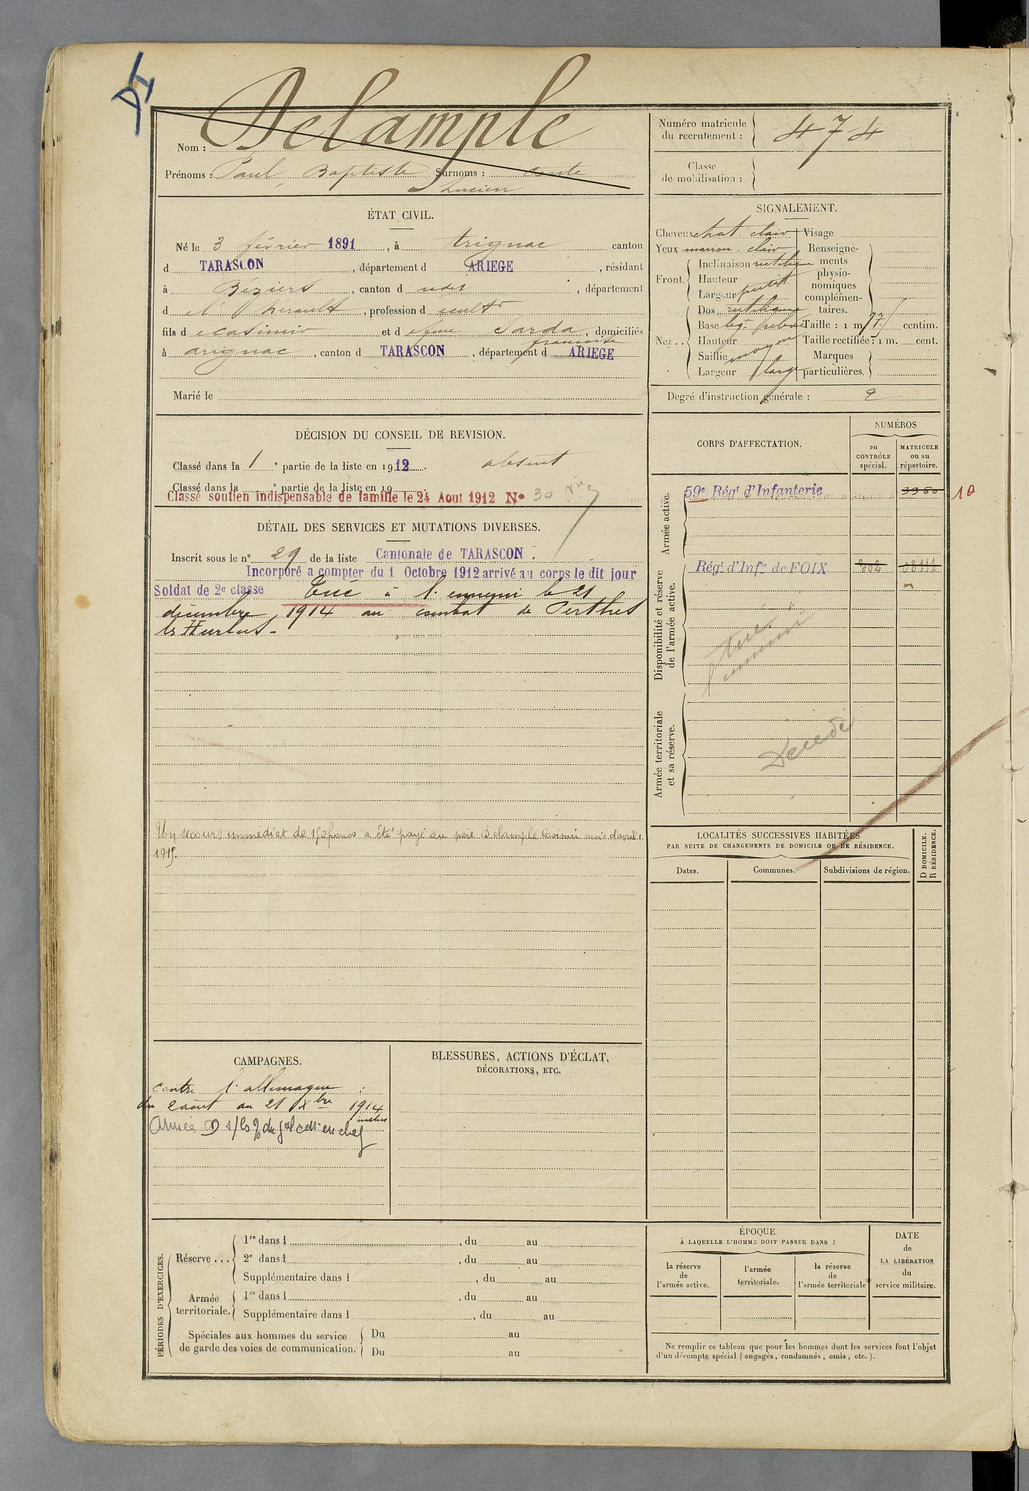 Nom : Delample
Prénoms : Paul, Baptiste Surnoms : Conte
Lucien
Numéro matricule
du recrutement : 474
Classe
de mobilisation :
ÉTAT CIVIL.
Né le 3 février 1891, à Arignac canton
d TARASCON, département d ARIEGE, résidant
à Béziers, canton d udes, département
d e l'hérault, profession d cultr
fils d e Casimir et d e feue Sarda, domiciliés
françoise
à arignac, canton d TARASCON, département d ARIEGE
Marié le
SIGNALEMENT.
Cheveux chat. clair Visage
Yeux marron clair Renseigne-
ments
physio-
nomiques
complémen-
taires.
Front. Inclinaison
Hauteur
Largeur petit
Nez . . Dos rectiligne
Base
Hauteur
Saillie moyen
Largeur large
Taille : 1 m. 77 centim.
Taille rectifiée : 1 m. cent.
Marques
particulières.
Degré d'instruction générale : 2
DÉCISION DU CONSEIL DE REVISION.
Classé dans la 1e partie de la liste en 1912. absent
Classé dans la e partie de la liste en 19
Classé soutien indispensable de famille le 24 Aout 1912 No 30
DÉTAIL DES SERVICES ET MUTATIONS DIVERSES.
Inscrit sous le no 29 de la liste Cantonale de TARASCON.
Incorporé à compter du 1 Octobre 1912 arrivé au corps le dit jour
Soldat de 2e classe Tué à l'ennemi le 21
décembre 1914 au combat de Perthes
les Hurlus.
Un secours immédiat de 150 francs a été payé au père Delample Casimir mois d'avril
1915.
CORPS D'AFFECTATION.
NUMÉROS
au
CONTRÔLE
spécial.
MATRICULE
ou au
répertoire.
Armée active.
59e Régt d'Infanterie 10
Disponibilité et réserve
de l'armée active.
Régt d'Infie de FOIX
tué à
l'ennemi
Armée territoriale
et sa réserve.
Décédé
LOCALITÉS SUCCESSIVES HABITÉES
PAR SUITE DE CHANGEMENTS DE DOMICILE OU DE RÉSIDENCE.
Dates. Communes. Subdivisions de région.
D DOMICILE.
R RÉSIDENCE.
CAMPAGNES.
Contre l'allemagne :
du 2 août au 21 Xbre 1914
BLESSURES, ACTIONS D'ÉCLAT,
DÉCORATIONS, ETC.
PÉRIODES D'EXERCICES.
Réserve . . . 1re dans l , du au
2e dans l , du au
Supplémentaire dans l , du au
Armée
territoriale. 1re dans l , du au
Supplémentaire dans l , du au
Spéciales aux hommes du service
de garde des voies de communication. Du au
Du au
ÉPOQUE
À LAQUELLE L'HOMME DOIT PASSER DANS :
la réserve
de
l'armée active.
l'armée
territoriale.
la réserve
de
l'armée territoriale
DATE
de
LA LIBÉRATION
du
service militaire.
Ne remplir ce tableau que pour les hommes dont les services font l'objet
d'un décompte spécial (engagés, condamnés, omis, etc.).